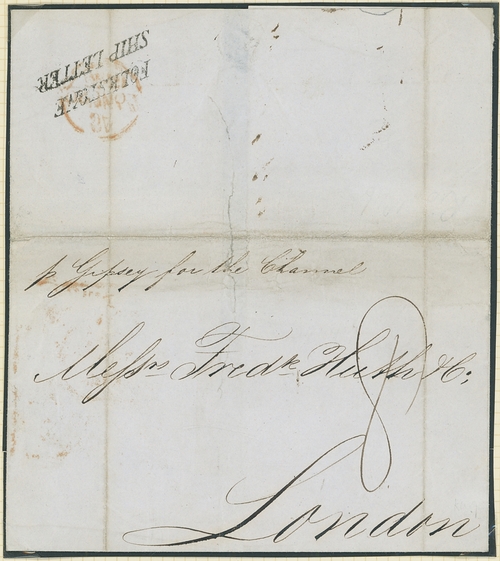 FOLKSTONE
SHIP LETTER
p Gipsey for the Channel
Messrs Fredk Huth & Co:
8
London